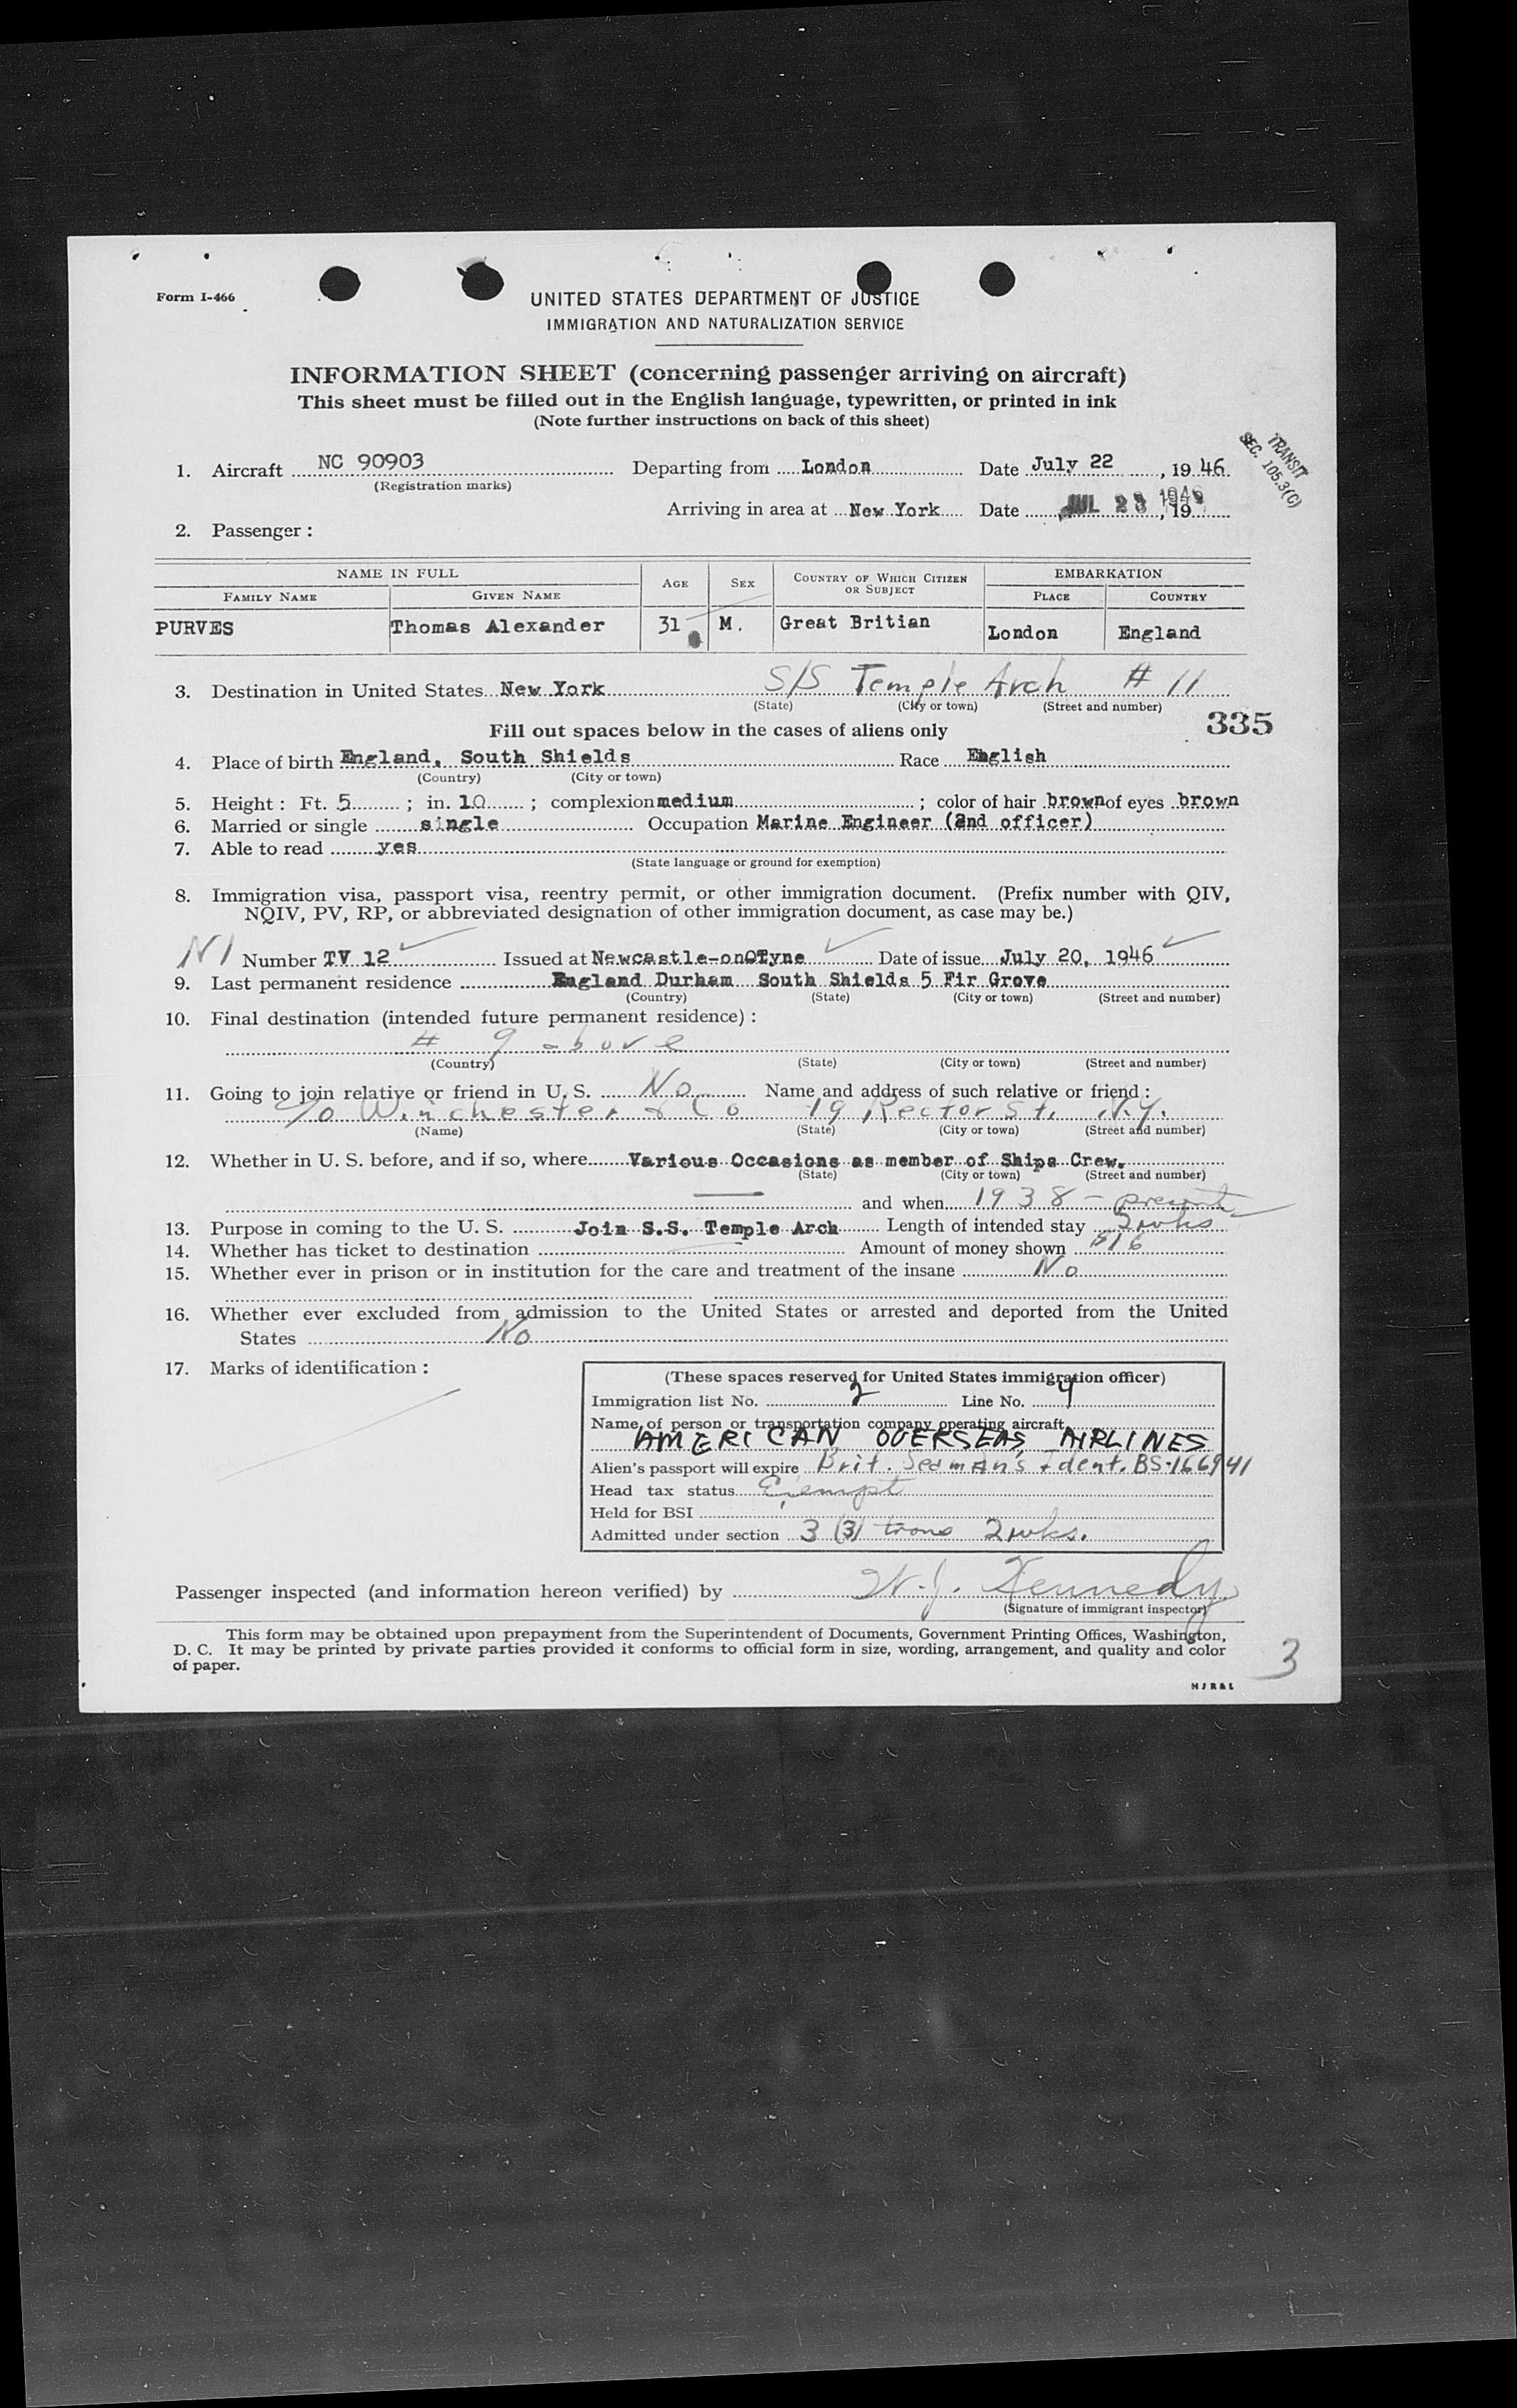 Form I-466
UNITED STATES DEPARTMENT OF JUSTICE
IMMIGRATION AND NATURALIZATION SERVICE
INFORMATION SHEET (concerning passenger arriving on aircraft)
This sheet must be filled out in the English language, typewritten, or printed in ink
(Note further instructions on back of this sheet)
TRANSIT
SEC. 105.3(C)
1. Aircraft NC 90903 Departing from London Date July 22, 19 46
(Registration marks)
Arriving in area at New York Date JUL 23 1946, 19
2. Passenger :
NAME IN FULL AGE SEX COUNTRY OF WHICH CITIZEN OR SUBJECT EMBARKATION
FAMILY NAME GIVEN NAME PLACE COUNTRY
PURVES Thomas Alexander 31 M. Great Britian London England
3. Destination in United States New York S/S Temple Arch # 11
(State) (City or town) (Street and number)
Fill out spaces below in the cases of aliens only 335
4. Place of birth England, South Shields Race English
(Country) (City or town)
5. Height : Ft. 5 ; in. 10 ; complexion medium ; color of hair brown of eyes brown
6. Married or single single Occupation Marine Engineer (2nd officer)
7. Able to read yes
(State language or ground for exemption)
8. Immigration visa, passport visa, reentry permit, or other immigration document. (Prefix number with QIV,
NQIV, PV, RP, or abbreviated designation of other immigration document, as case may be.)
NI Number TV 12 Issued at Newcastle-onOTyne Date of issue July 20, 1946
9. Last permanent residence England Durham South Shields 5 Fir Grove
(Country) (State) (City or town) (Street and number)
10. Final destination (intended future permanent residence) :
# 9 above
(Country) (State) (City or town) (Street and number)
11. Going to join relative or friend in U. S. No Name and address of such relative or friend :
c/o Winchester & Co 19 Rector St. N.Y.
(Name) (State) (City or town) (Street and number)
12. Whether in U. S. before, and if so, where Various Occasions as member of Ships Crew.
(State) (City or town) (Street and number)
and when 1938 - present
13. Purpose in coming to the U. S. Join S.S. Temple Arch Length of intended stay 2 wks
14. Whether has ticket to destination Amount of money shown $16
15. Whether ever in prison or in institution for the care and treatment of the insane No
16. Whether ever excluded from admission to the United States or arrested and deported from the United
States No
17. Marks of identification :
(These spaces reserved for United States immigration officer)
Immigration list No. 2 Line No. 4
Name of person or transportation company operating aircraft
AMERICAN OVERSEAS AIRLINES
Alien's passport will expire Brit. Seaman's Ident. BS-166941
Head tax status Exempt
Held for BSI
Admitted under section 3 (3) trans 2 wks.
Passenger inspected (and information hereon verified) by W. J. Kennedy
(Signature of immigrant inspector)
This form may be obtained upon prepayment from the Superintendent of Documents, Government Printing Offices, Washington,
D. C. It may be printed by private parties provided it conforms to official form in size, wording, arrangement, and quality and color
of paper.
3
HJR&L